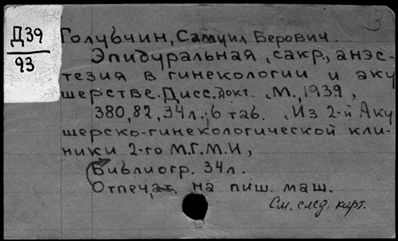 Д39
93
3
Голубчин, Самуил Берович.
Эпидуральная, сакр., анэс-
тезия в гинекологии и аку
шерстве. Дисс. докт. М., 1939,
380, 82, 34л.; 6 таб. Из 2-й Аку
шерско-гинекологической кли-
ники 2-го М.Г.М.И,
Библиогр. 34л.
Отпечат. на пиш. маш.
См. след. карт.